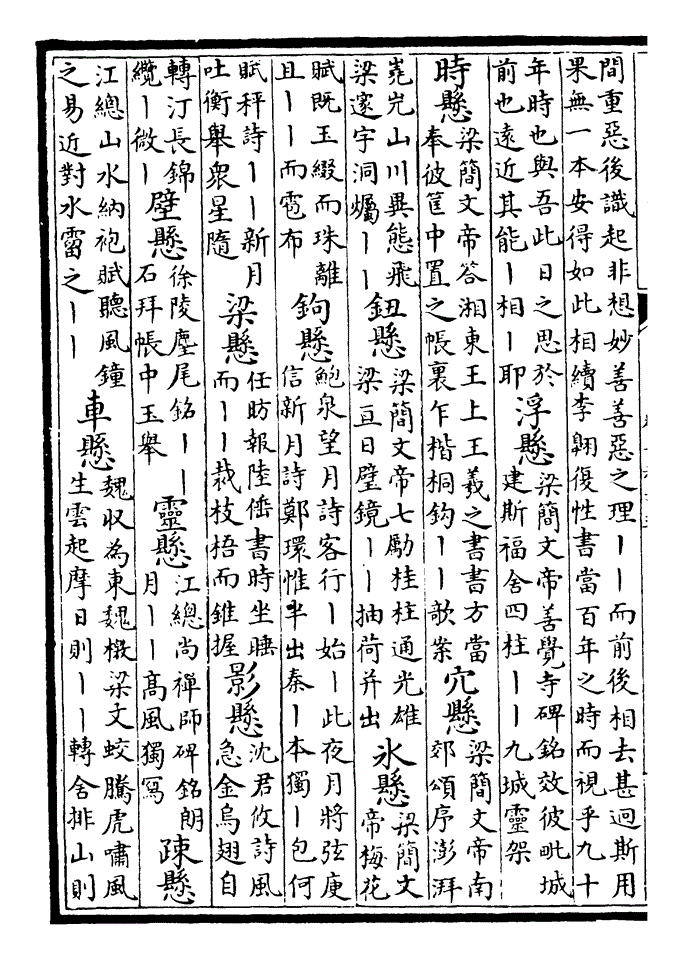 間重惡後識起非想妙善善惡之理丨丨而前後相去甚迥斯用
果無一本安得如此相續李翺復性書當百年之時而視乎九十
年時也與吾此日之思於
前也遠近其能丨相丨耶
浮懸
梁簡文帝善覺寺碑銘效彼毗城
建斯福舍四柱丨丨九城靈架
時懸
梁簡文帝答湘東王上王羲之書書方當
奉彼筐中置之帳裏乍楷桐鈎丨丨歌案
穴懸
梁簡文帝南
郊頌序澎湃
嵬岏山川異態飛
梁邃宇洞爥丨丨
鈕懸
梁簡文帝七勵桂柱通光雄
梁亘日璧鏡丨丨抽荷并出
氷懸
梁簡文
帝梅花
賦既玉綴而珠離
且丨丨而雹布
鉤懸
鮑泉望月詩客行丨始丨此夜月將弦庾
信新月詩鄭環惟半出秦丨本獨丨包何
賦秤詩丨丨新月
吐衡舉衆星隨
梁懸
任昉報陸倕書時坐睡
而丨丨裁枝梧而錐握
影懸
沈君攸詩風
急金烏翅自
轉汀長錦
纜丨微丨
壁懸
徐陵麈尾銘丨丨
石拜帳中玉舉
靈懸
江總尚禪師碑銘朗
月丨丨高風獨寫
疎懸
江總山水納袍賦聽風鐘
之易近對水霤之丨丨
車懸
魏収為東魏檄梁文蛟騰虎嘯風
生雲起摩日則丨丨轉舍排山則